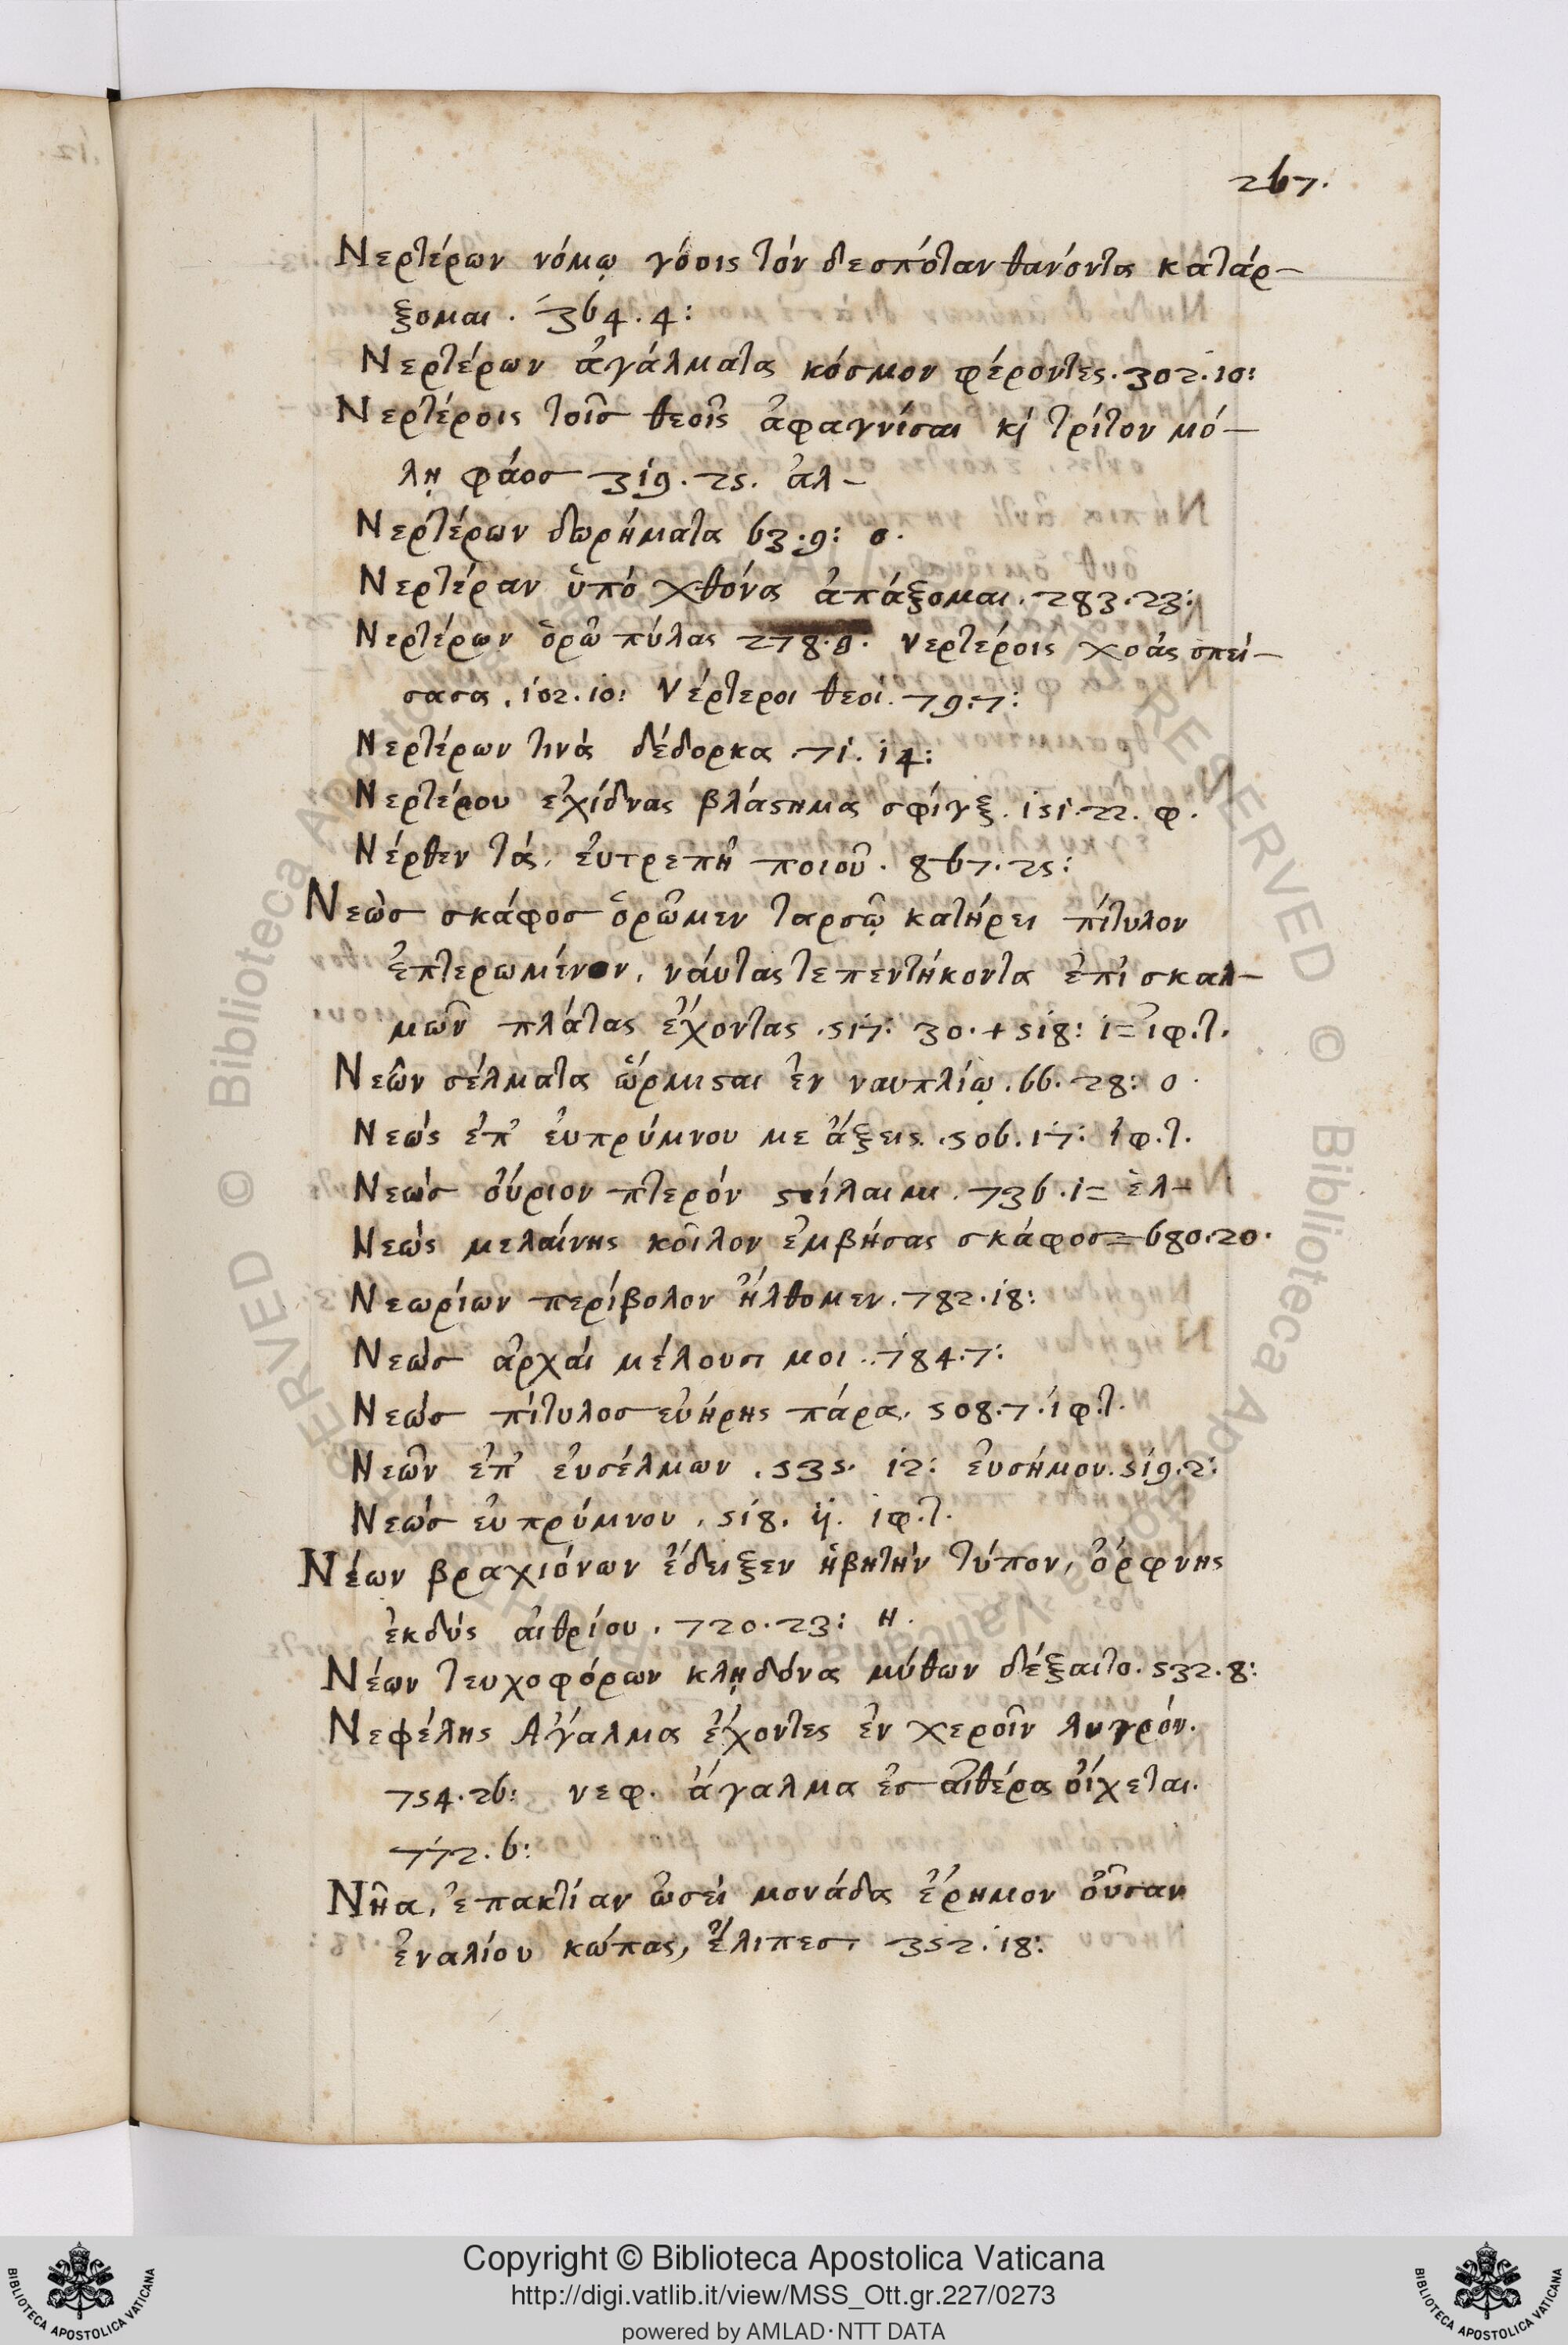 267.
Νερτέρων νόμῳ γόοις τὸν δεσπόταν θανόντα κατάρ-
ξομαι. 364.4:
Νερτέρων ἀγάλματα κόσμον φέροντες. 302.10:
Νερτέροις τοῖσ θεοῖς ἀφαγνίσαι κὶ τρίτον μό-
λῃ φάοσ 319.25. ἀλ-
Νερτέρων δωρήματα 63.9: ο.
Νερτέραν ὑπὸ χθόνα ἀπάξομαι. 283.23:
Νερτέρων ὁρῶ πύλας 278.9. Νερτέροις χοάς σπεί-
σασα. 102.10: Νέρτεροι θεοί. 79.7:
Νερτέρων τινὰ δέδορκα 71.14:
Νερτέρου ἐχίδνας βλάστημα σφίγξ. 151.22. φ.
Νέρθεν τὰ, ἐυτρεπῆ ποιοῦ. 867.25:
Νεὼσ σκάφοσ ὁρῶμεν ταρσῷ κατήρει πίτυλον
ἐπτερωμένον, νάυτας τε πεντήκοντα ἐπὶ σκαλ-
μῶν πλάτας ἔχοντας. 517: 30. + 518: 1= ἰφ.τ.
Νεῶν σέλματα ὥρμισαι ἐν ναυπλίῳ. 66.28: ο.
Νεὼς ἐπ' ἐυπρύμνου με ἄξεις. 506.17: ἰφ.τ.
Νεὼσ ὄυριον πτερόν στείλαιμι. 736.1= ἑλ-
Νεὼς μελαίνης κοῖλον ἐμβήσας σκάφοσ= 680.20.
Νεωρίων περίβολον ἤλθομεν. 782.18:
Νεὼσ ἀρχαὶ μέλουσι μοι.. 784.7:
Νεὼσ πίτυλοσ ἐυήρης πάρα. 508.7. ἰφ.τ.
Νεῶν ἐπ' ἐυσέλμων. 535. 12: ἐυσήμον. 519.2:
Νεὼσ ἐυπρύμνου. 518. 11. ἰφ.τ.
Νέων βραχιόνων ἔδειξεν ἡβητὴν τύπον, ὄρφνης
ἐκδὺς ἀιθρίου. 720.23: η.
Νέων τευχοφόρων κλῃδόνα μύθων δέξαιτο. 532.8:
Νεφέλης Ἄγαλμα ἔχοντες ἐν χεροῖν λυγρόν.
754.26: νεφ. ἄγαλμα ἐσ αἰθέρα ὄιχεται.
772.6:
Νῆα, ἐπακτίαν ὡσεὶ μονάδα ἔρημον ὄυσαν
ἐναλίου κώπας, ἔλιπεσ 352.18:
Copyright © Biblioteca Apostolica Vaticana
http://digi.vatlib.it/view/MSS_Ott.gr.227/0273
powered by AMLAD·NTT DATA